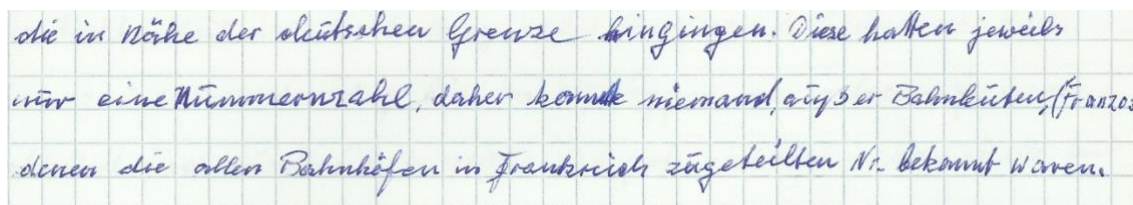 die in Nähe der deutschen Grenze hingingen. Diese hatten jeweils
nur eine Nummernzahl, daher konnte niemand, außer Bahnleuten, (Franzos
denen die allen Bahnhöfen in Frankreich zugeteilten Nr. bekannt waren.